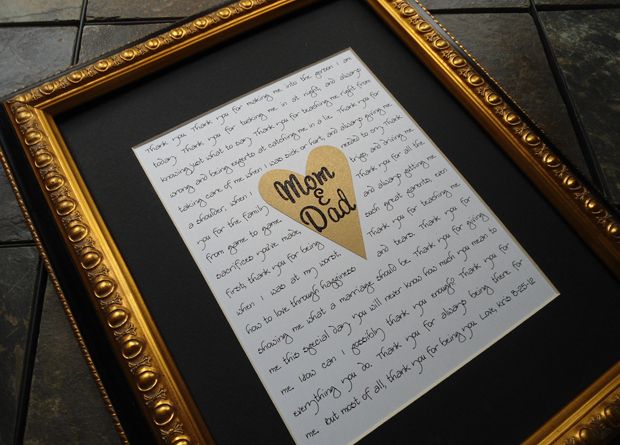 Thank you. Thank you for making me into the person I am
today. Thank you for tucking me in at night, and always
knowing just what to say. Thank you for teaching me right from
wrong and being experts at catching me in a lie. Thank you for
taking care of me when I was sick or hurt, and always giving me
a shoulder when I needed to cry. Thank
you for the family trips and driving me
from game to game. Thank you for all the
sacrifices you've made, and always putting me
first; thank you for being such great parents, even
when I was at my worst. Thank you for teaching me
how to love through happiness and tears. Thank you for
showing me what a marriage should be. Thank you for giving
me this special day. you will never know how much you mean to
me. How can I possibly thank you enough? Thank you for
everything you do. Thank you for always being there for
me, but most of all, thank you for being you. Love, Kris 8-25-12
Mom
&
Dad